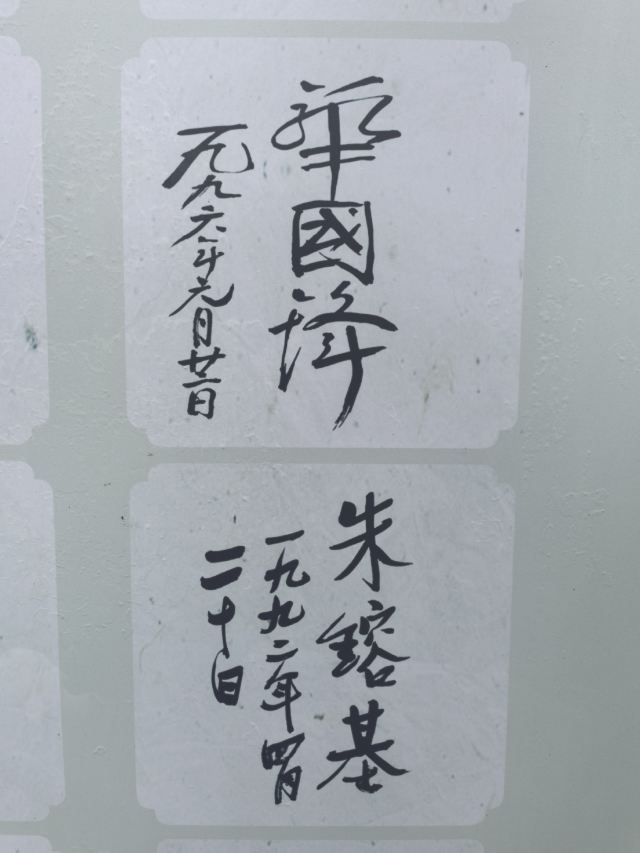 華國鋒
一九九六年元月廿一日
朱鎔基
一九九二年四月
二十日